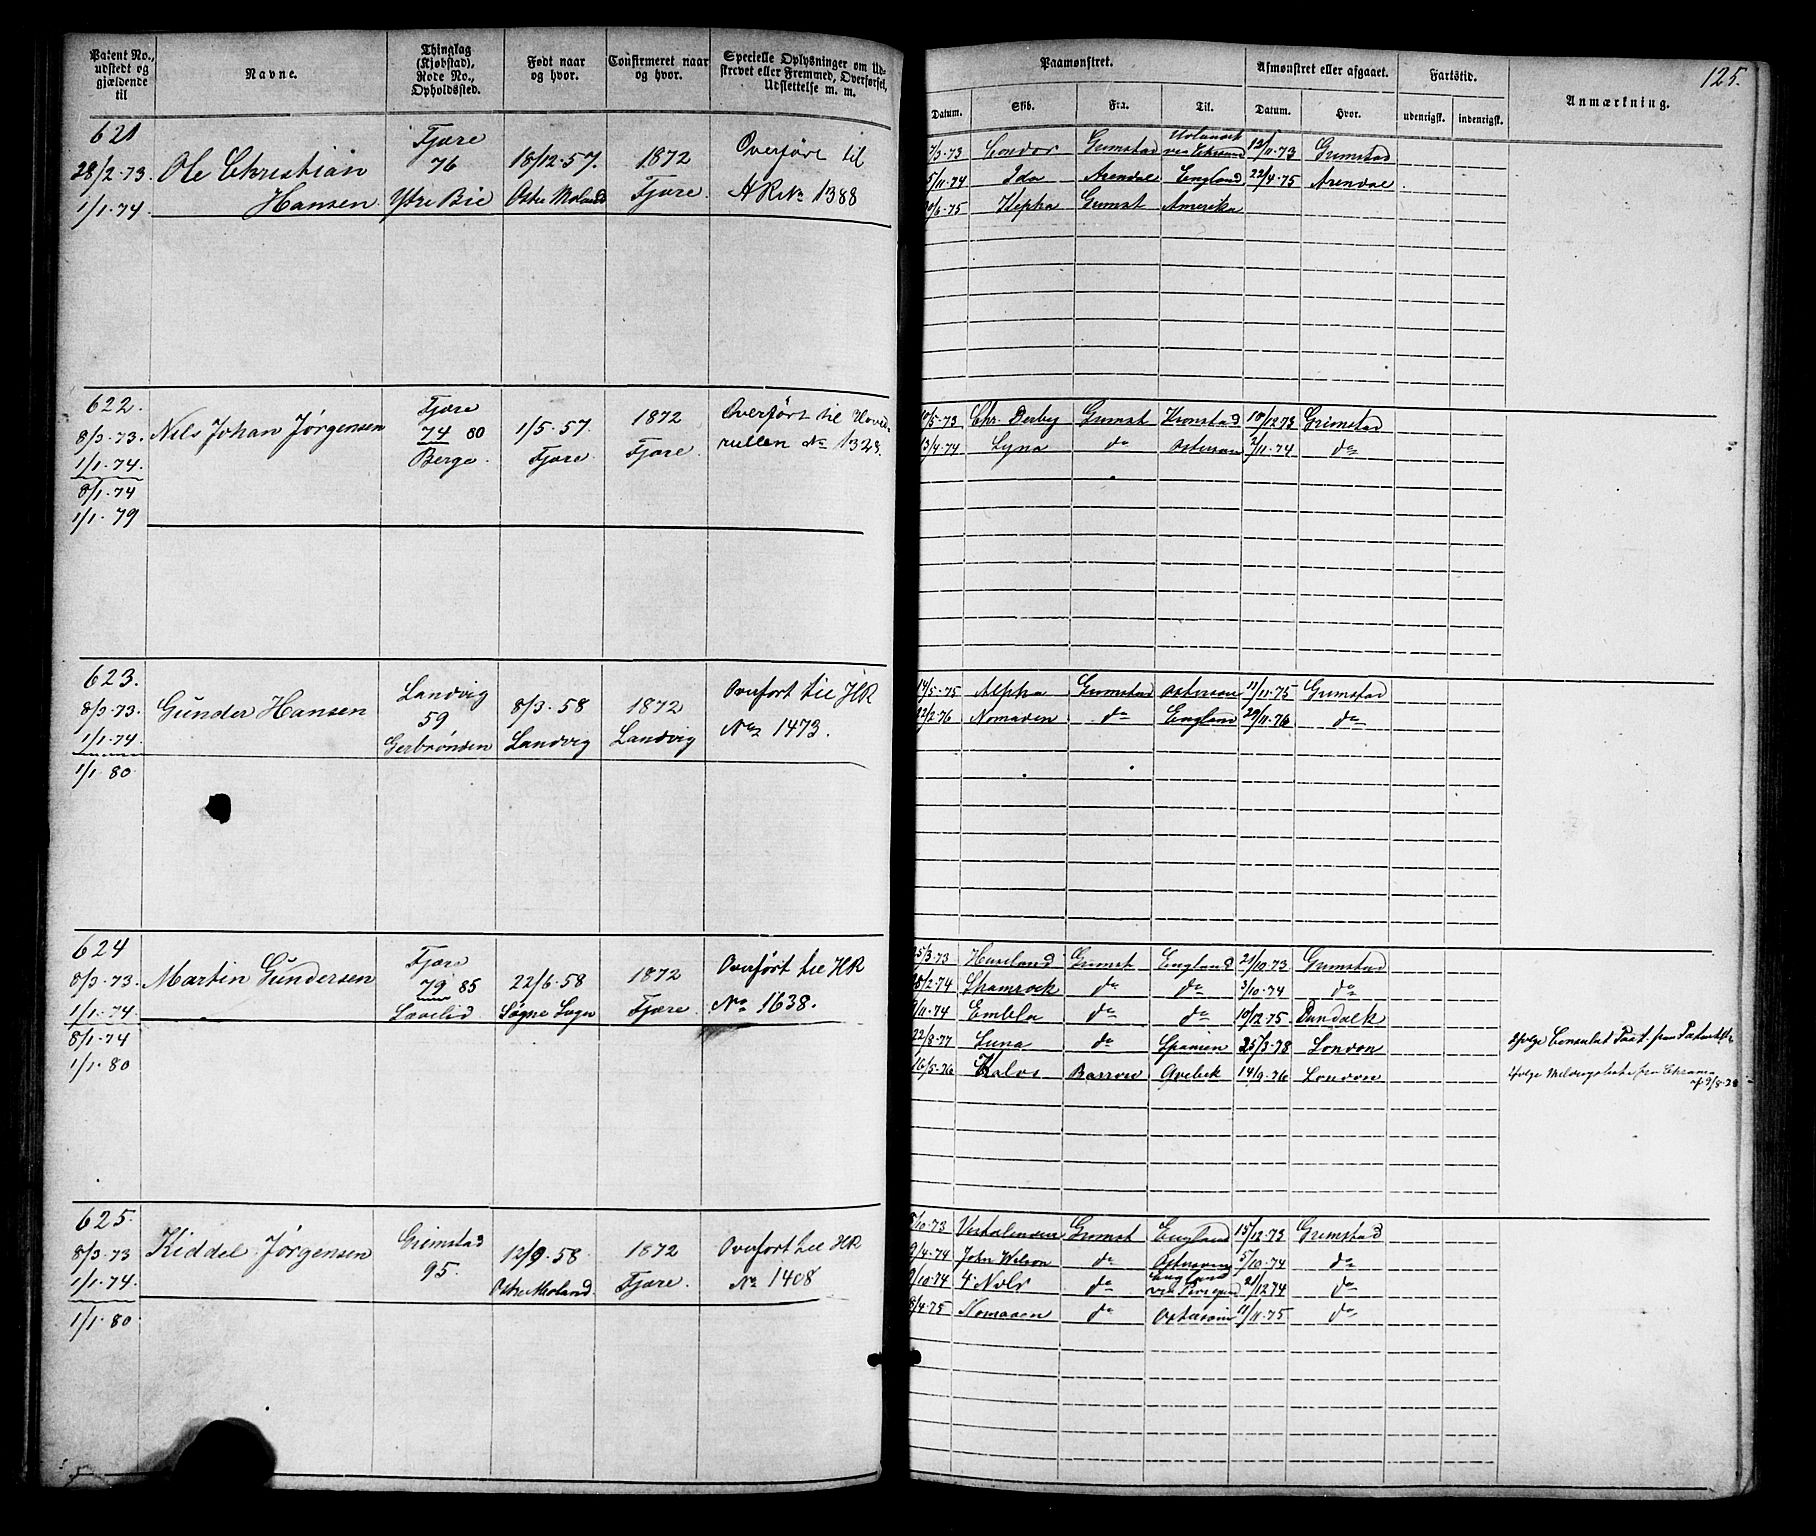 125.
Patent No., udstedt og gjældende til
Navne.
Thinglag (Kjøbstad), Rode No., Opholdssted.
Født naar og hvor.
Confirmeret naar og hvor.
Specielle Oplysninger om Udskrevet eller Fremmed, Overførsel, Udslettelse m. m.
Paamønstret.
Datum.
Skib.
Fra.
Til.
Afmønstret eller afgaaet.
Datum.
Hvor.
Fartstid.
udenrigsk.
indenrigsk.
Anmærkning.
621
28/2-73.
1/1-74.
Ole Christian
Hansen
Fjære
76
Ytre Bie
18/12-57.
Østre Moland
1872
Fjære
Overført til
HR No 1388
7/3-73 Condor Grimstad 12/11-73 Grimstad
5/11-74 Ida Arendal England 22/4-75 Arendal
Grimst Amerika
622.
8/3-73.
1/1-74.
8/1-74
1/1-79
Nils Johan Jørgensen
Fjære
74 80
Berge
1/5-57.
Fjære
1872
Fjære
Overført til Hoved-
rullen No 1328.
10/5-73 Chr. Derby Grimst Kronstad 18/12 73 Grimstad
13/4-74 Lyna do Østersøn 2/11-74 do
623.
8/3-73.
1/1-74.
1/1-80
Gunder Hansen
Landvig
59
Gerbrønden
8/3-58
Landvig
1872
Landvig
Overført til HR
No 1473.
14/5-75 Alpha Grimstad Østersøn 11/11-75 Grimstad
22/2-76 Nornaven do England 29/11-76 do
624
8/3-73.
1/1-74
8/1-74
1/1-80
Martin Gundersen
Fjære
79 85
Løvelid
22/6-58
Søgne Sogn
1872
Fjære
Overført til HR
No 1638.
25/3-73 Huseland Grimst England 21/10-73 Grimstad
18/2-74 Shamrock do do 3/10-74 do
9/11-74 Embla do do 10/12-75 Dundalk
22/8-77 Luna do Spanien 25/3-78 London
16/5-76 Barrow Qvebek 14/9-76 London
625.
8/3-73
1/1-74.
1/1-80
Kiddel Jørgensen
Grimstad
95.
12/9-58
Østre Moland
1872
Fjære.
Overført til HR
No 1408
5/10-73 Grimst England 15/12-73 Grimstad
9/4-74 John Wilson do 5/10-74 do
9/10-74 4 Nils do England 21/12 74 do
8/4-75 Nornaven do 11/11-75 do